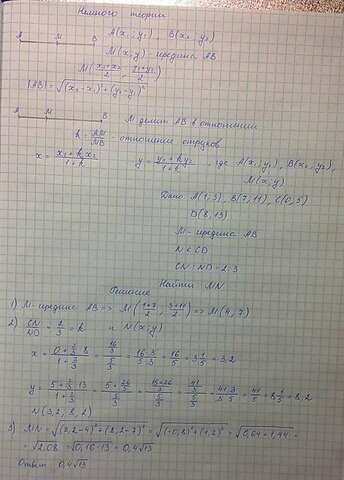 Немного теории
A M B A(x₁; y₁), B(x₂; y₂)
M(x; y) - середина AB
M((x₁+x₂)/2; (y₁+y₂)/2)
|AB| = √((x₂-x₁)²+(y₂-y₁)²)
A M B
M делит AB в отношении
k = AM/MB - отношение отрезков
x = (x₁+kx₂)/(1+k) y = (y₁+ky₂)/(1+k), где A(x₁; y₁), B(x₂; y₂),
M(x; y)
Дано: A(1; 3), B(7; 11), C(0; 5)
D(8; 13)
M - середина AB
N ∈ CD
CN : ND = 2:3
Найти MN
Решение
1) M - середина AB => M((1+7)/2; (3+11)/2) => M(4; 7)
2) CN/ND = 2/3 = k и N(x; y)
x = (0+2/3·8)/(1+2/3) = (16/3)/(5/3) = 16·3/3·5 = 16/5 = 3 1/5 = 3,2
y = (5+2/3·13)/(1+2/3) = (5+26/3)/(5/3) = ((15+26)/3)/(5/3) = (41/3)/(5/3) = 41·3/3·5 = 41/5 = 8 1/5 = 8,2
N(3,2; 8,2)
3) MN = √((3,2-4)²+(8,2-7)²) = √((-0,8)²+(1,2)²) = √(0,64+1,44) =
= √2,08 = √(0,16·13) = 0,4√13
Ответ: 0,4√13